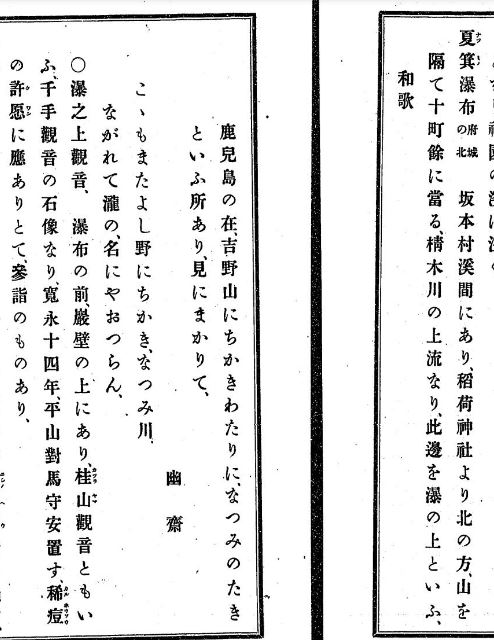 夏箕瀑布 府城の北 坂本村溪間にあり、稻荷神社より北の方、山を
隔て十町餘に當る、棈木川の上流なり、此邊を瀑の上といふ、
和歌
鹿兒島の在、吉野山にちかきわたりに、なつみのたき
といふ所あり、見にまかりて、
幽齋
こゝもまたよし野にちかき、なつみ川、
ながれて瀧の、名にやおつらん、
○瀑之上觀音、瀑布の前、巖壁の上にあり、桂山觀音ともい
ふ、千手觀音の石像なり、寬永十四年、平山對馬守安置す、稀痘
の許愿に應ありとて、參詣のものあり、